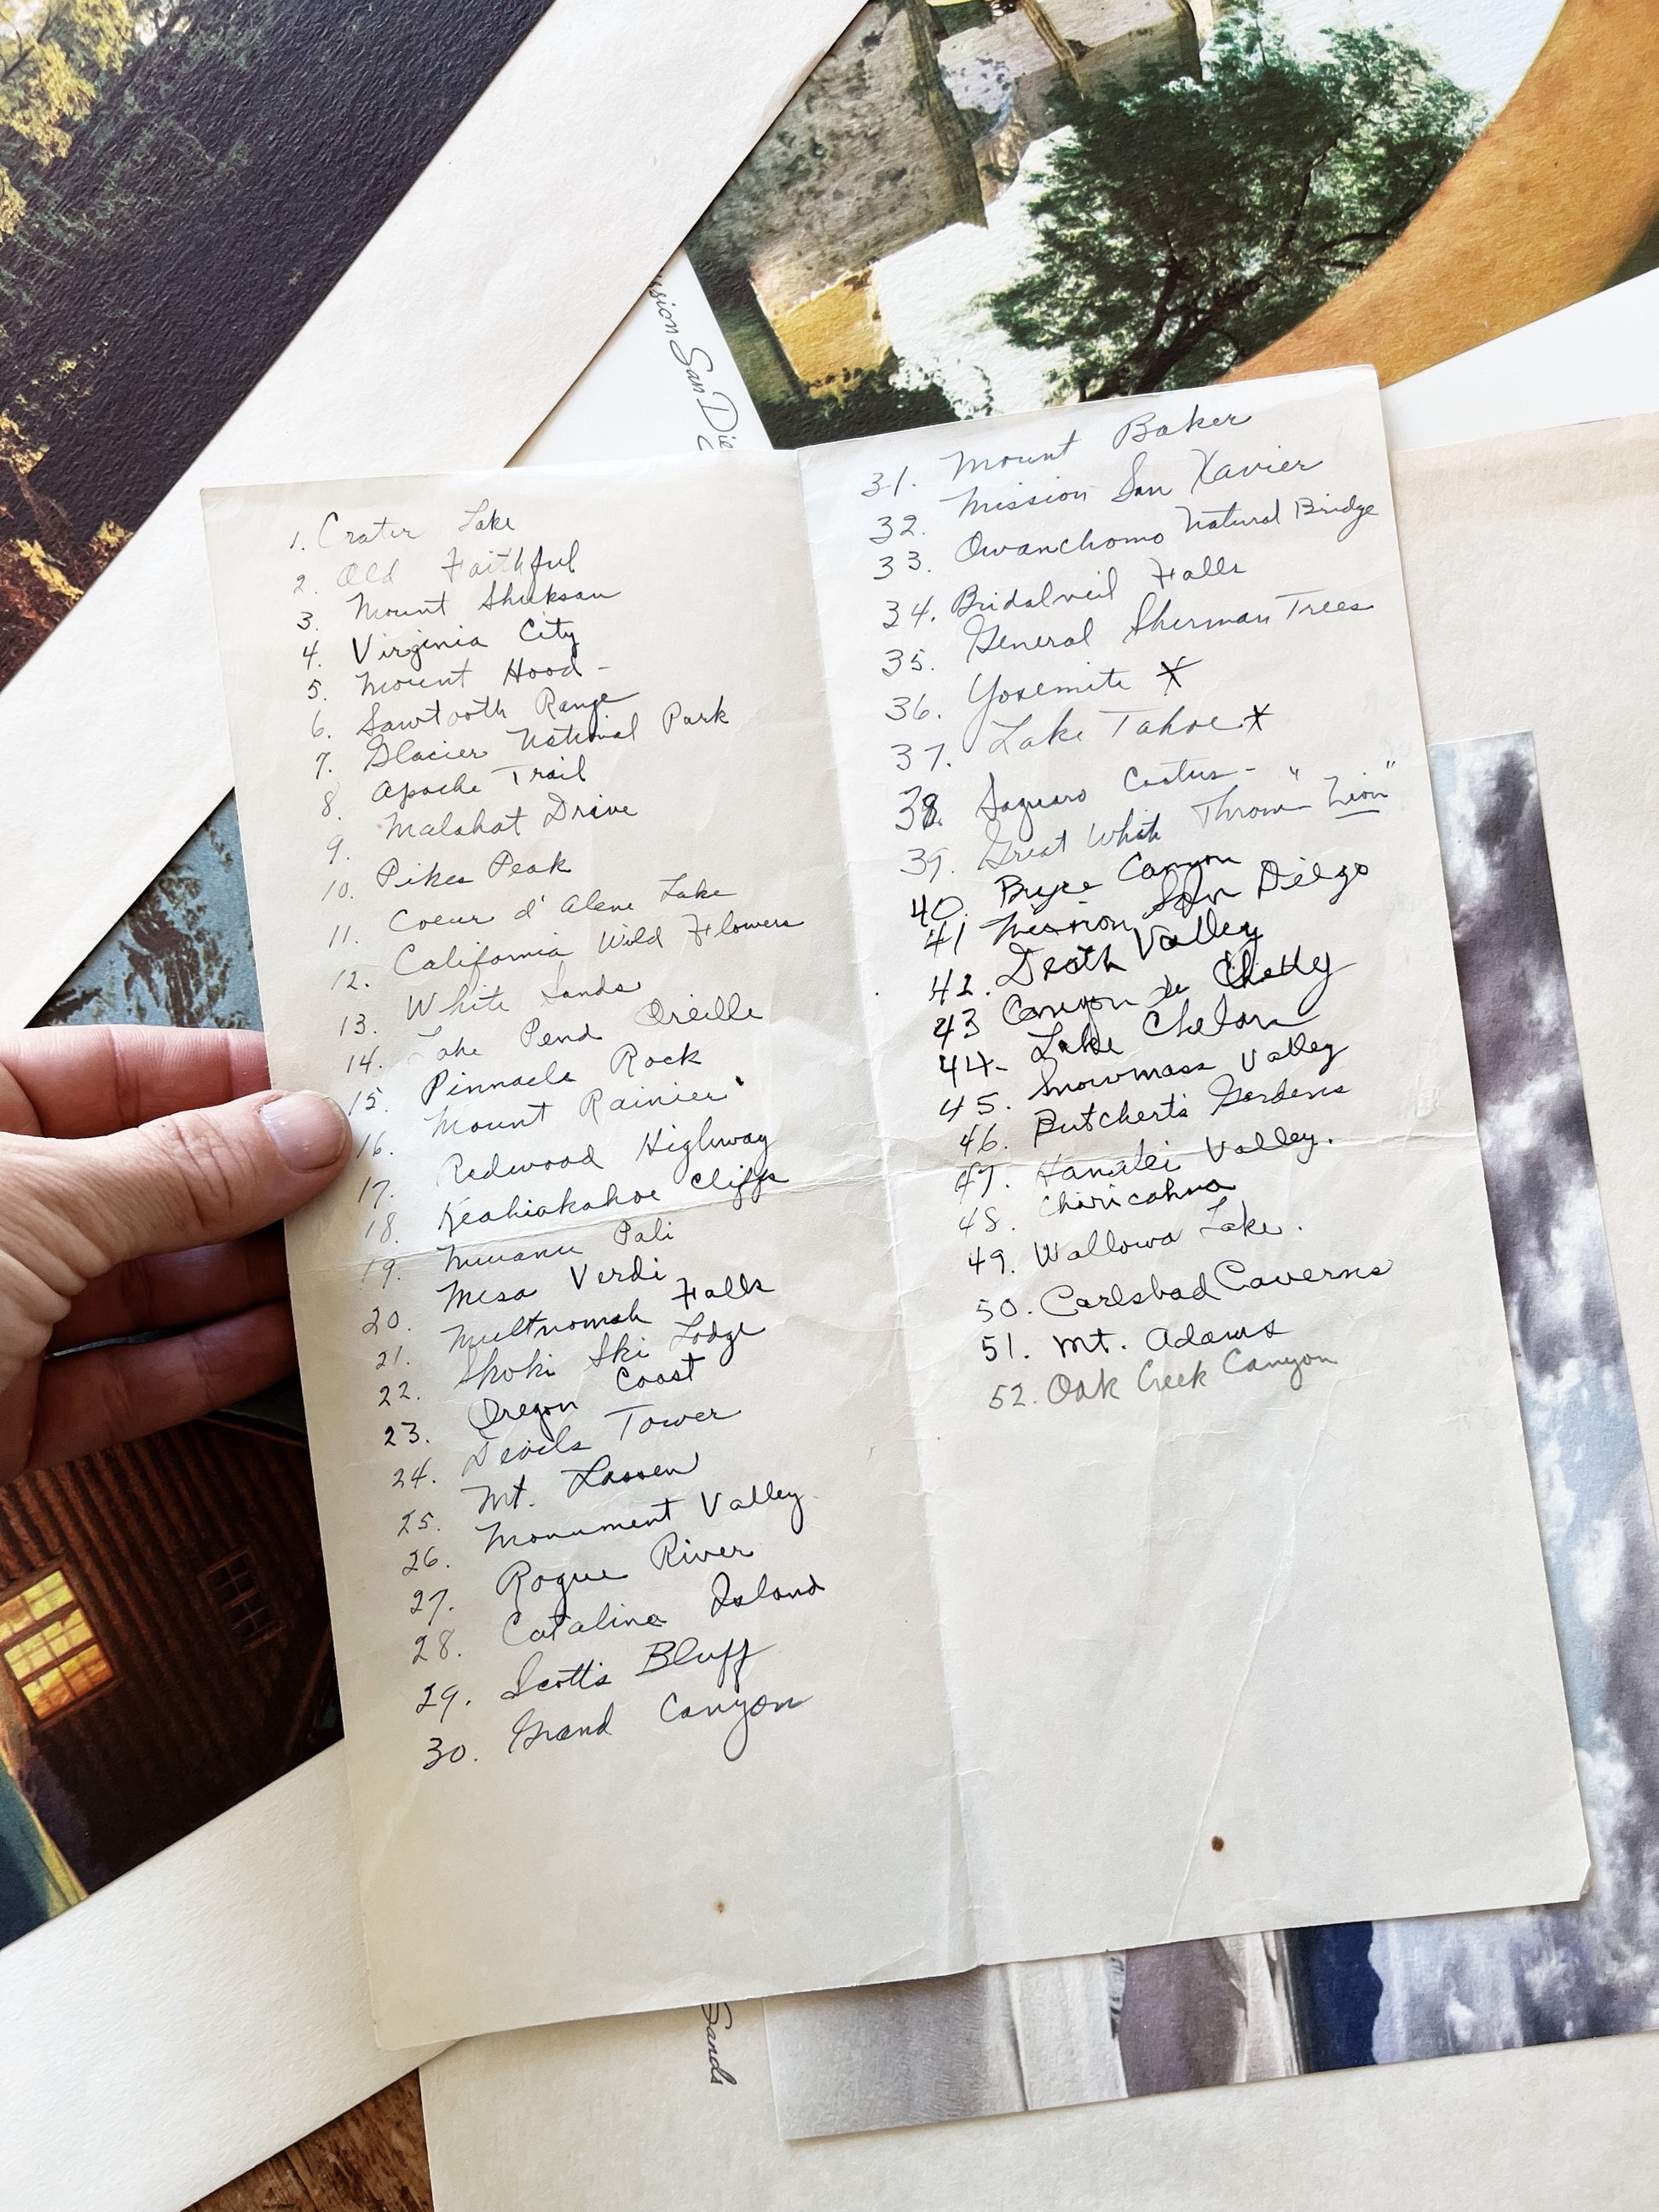 1. Crater Lake
2. Old Faithful
3. Mount Shuksan
4. Virginia City
5. Mount Hood -
6. Sawtooth Range
7. Glacier National Park
8. Apache Trail
9. Malahat Drive
10. Pikes Peak
11. Coeur d'Alene Lake
12. California Wild Flowers
13. White Sands
14. Lake Pend Oreille
15. Pinnacle Rock
16. Mount Rainier
17. Redwood Highway
18. Keahiakahoe Cliffs
19. Nuuanu Pali
20. Mesa Verdi
21. Multnomah Falls
22. Skoki Ski Lodge
23. Oregon Coast
24. Devils Tower
25. Mt. Lassen
26. Monument Valley
27. Rogue River
28. Catalina Island
29. Scotts Bluff
30. Grand Canyon
31. Mount Baker
32. Mission San Xavier
33. Owanchomo Natural Bridge
34. Bridalveil Falls
35. General Sherman Trees
36. Yosemite X
37. Lake Tahoe X
38. Saguaro Cactus -
39. Great White Throne "Zion"
40. Bryce Canyon
41 Mission San Diego
42. Death Valley
43 Canyon de Chelly
44- Lake Chelan
45. Snowmass Valley
46. Butchert's Gardens
47. Hanalei Valley.
48. Chiricahua
49. Wallowa Lake.
50. Carlsbad Caverns
51. Mt. Adams
52. Oak Creek Canyon
ision San Die
Sands